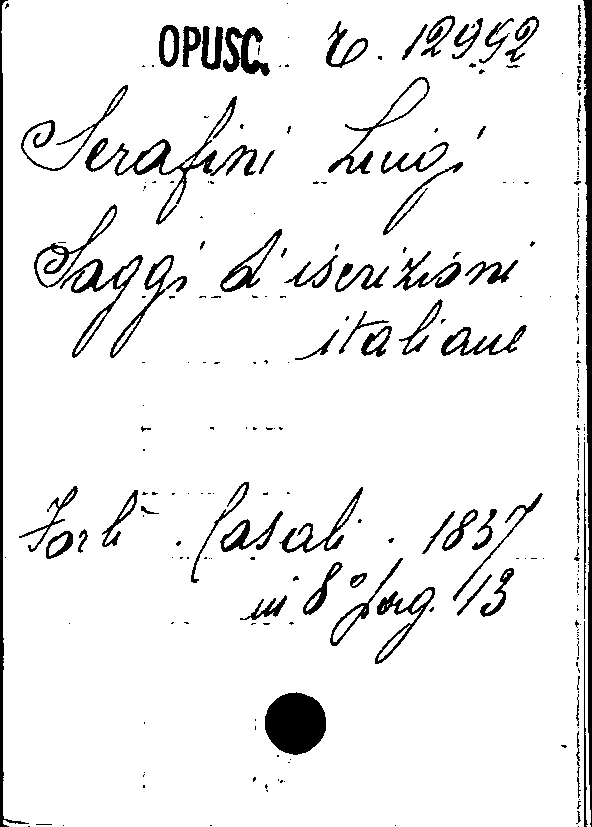 OPUSC. C. 12992
Serafini Luigi
Saggi d'iscrizioni
italiane
Forlì. Casali. 1837
in 8° pag. 13